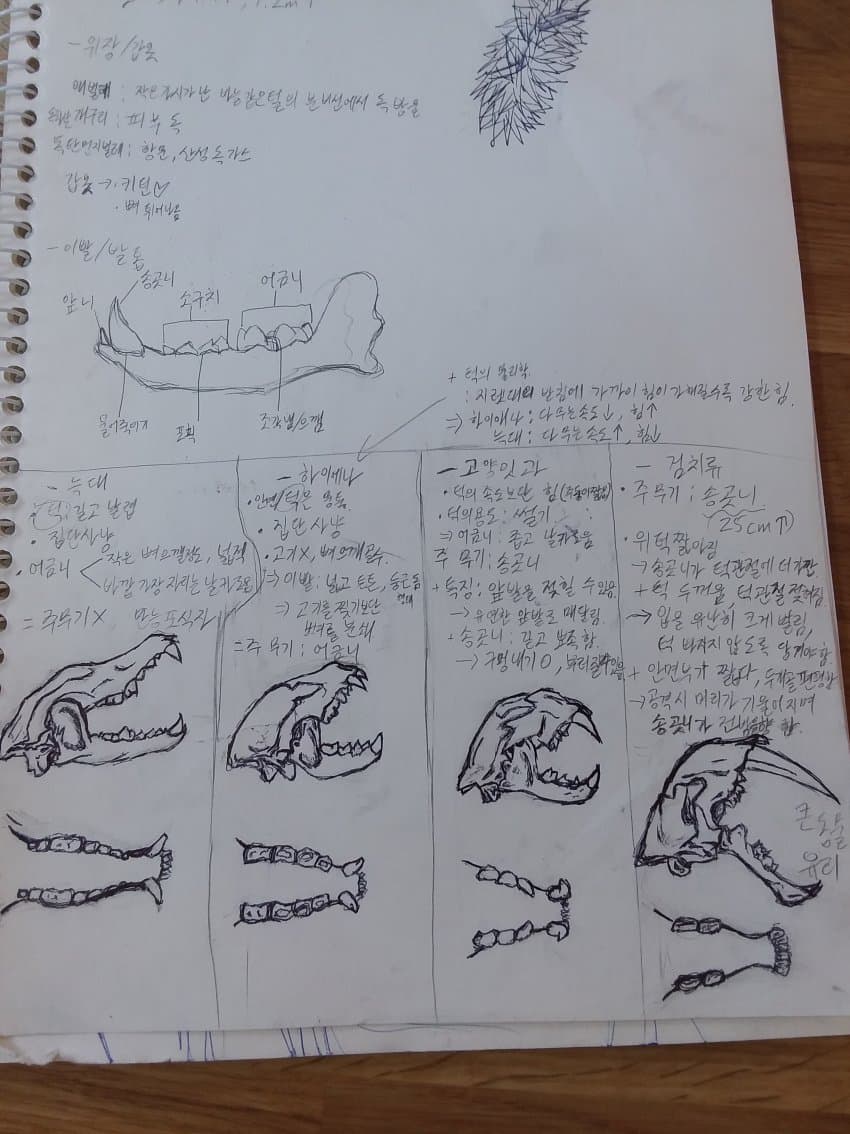 - 위장/갑옷
애벌레 : 작은 가시가 난 바늘같은 털의 분비선에서 독 방울
개구리 : 피부 독
폭탄먼지벌레 : 항문, 산성 독가스
갑옷 → · 키틴
· 뼈 튀어나옴
- 이빨/발톱
송곳니
앞니 소구치 어금니
물어죽이기 포획 조각냄/으깸
+ 턱의 물리학
: 지렛대의 받침에 가까이 힘이 가해질수록 강한 힘.
⇒ 하이에나 : 다무는속도↓, 힘↑
늑대 : 다무는속도↑, 힘↓
- 늑대
· 턱: 길고 날렵
· 집단사냥
· 어금니 < 작은 뼈 으깰정도, 넓적
바깥 가장자리는 날카로움
= 주무기 X 만능 포식자
- 하이에나
· 안면/턱은 뭉툭
· 집단 사냥
· 고기X, 뼈으깨
⇒ 이빨 : 넓고 튼튼, 둥근 돔 형태
⇒ 고기를 찢기보단
뼈를 분쇄
= 주 무기 : 어금니
- 고양잇과
· 턱의 속도보단 힘(주둥이짧음)
· 턱의용도 : 썰기
⇒ 어금니 : 좁고 날카로움
주 무기 : 송곳니
+ 특징 : 앞발을 젖힐 수 있음
→ 유연한 앞발로 매달림
+ 송곳니 : 길고 뾰족함.
→ 구멍내기 O,
- 검치류
· 주 무기 : 송곳니
(25cm↑)
· 위턱 짧아짐
→ 송곳니가 턱관절에 더 가까
+ 턱 두꺼움, 턱관절 젖혀짐
→ 입을 유난히 크게 벌림,
턱 빠지지 않도록
+ 안면부가 짧다, 두개골 편평함
→ 공격시 머리가 기울어지며
송곳니가 전방을향 함.
큰
동물
유리